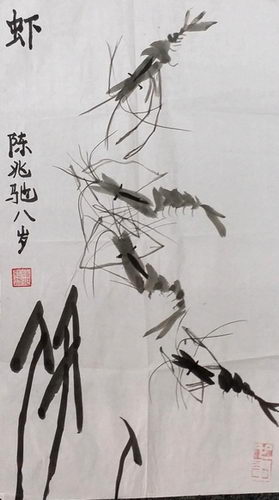 虾
陈兆驰八岁